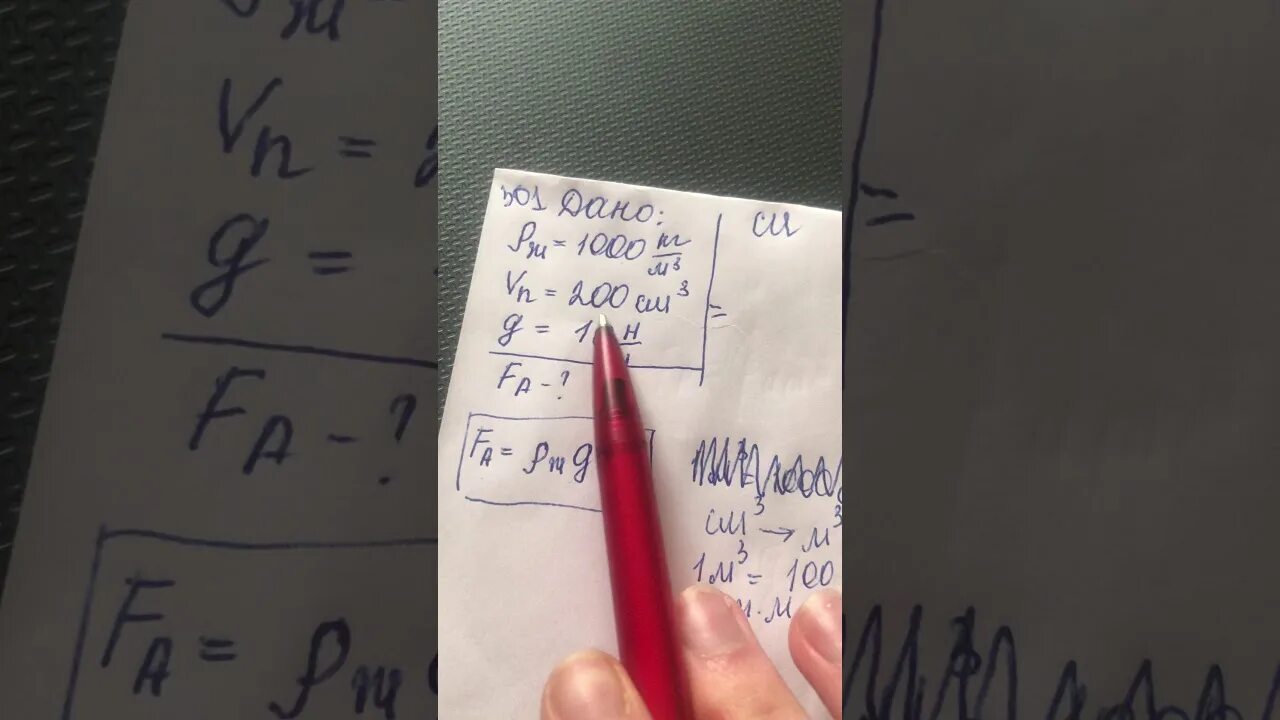 501 Дано:
СИ
ρж = 1000 кг/м³
Vп = 200 см³ =
g = 1 Н
FА - ?
FА = ρж g
см³ → м³
1м³ = 100
м · м
Vп =
g =
FА - ?
FА = ρж
=